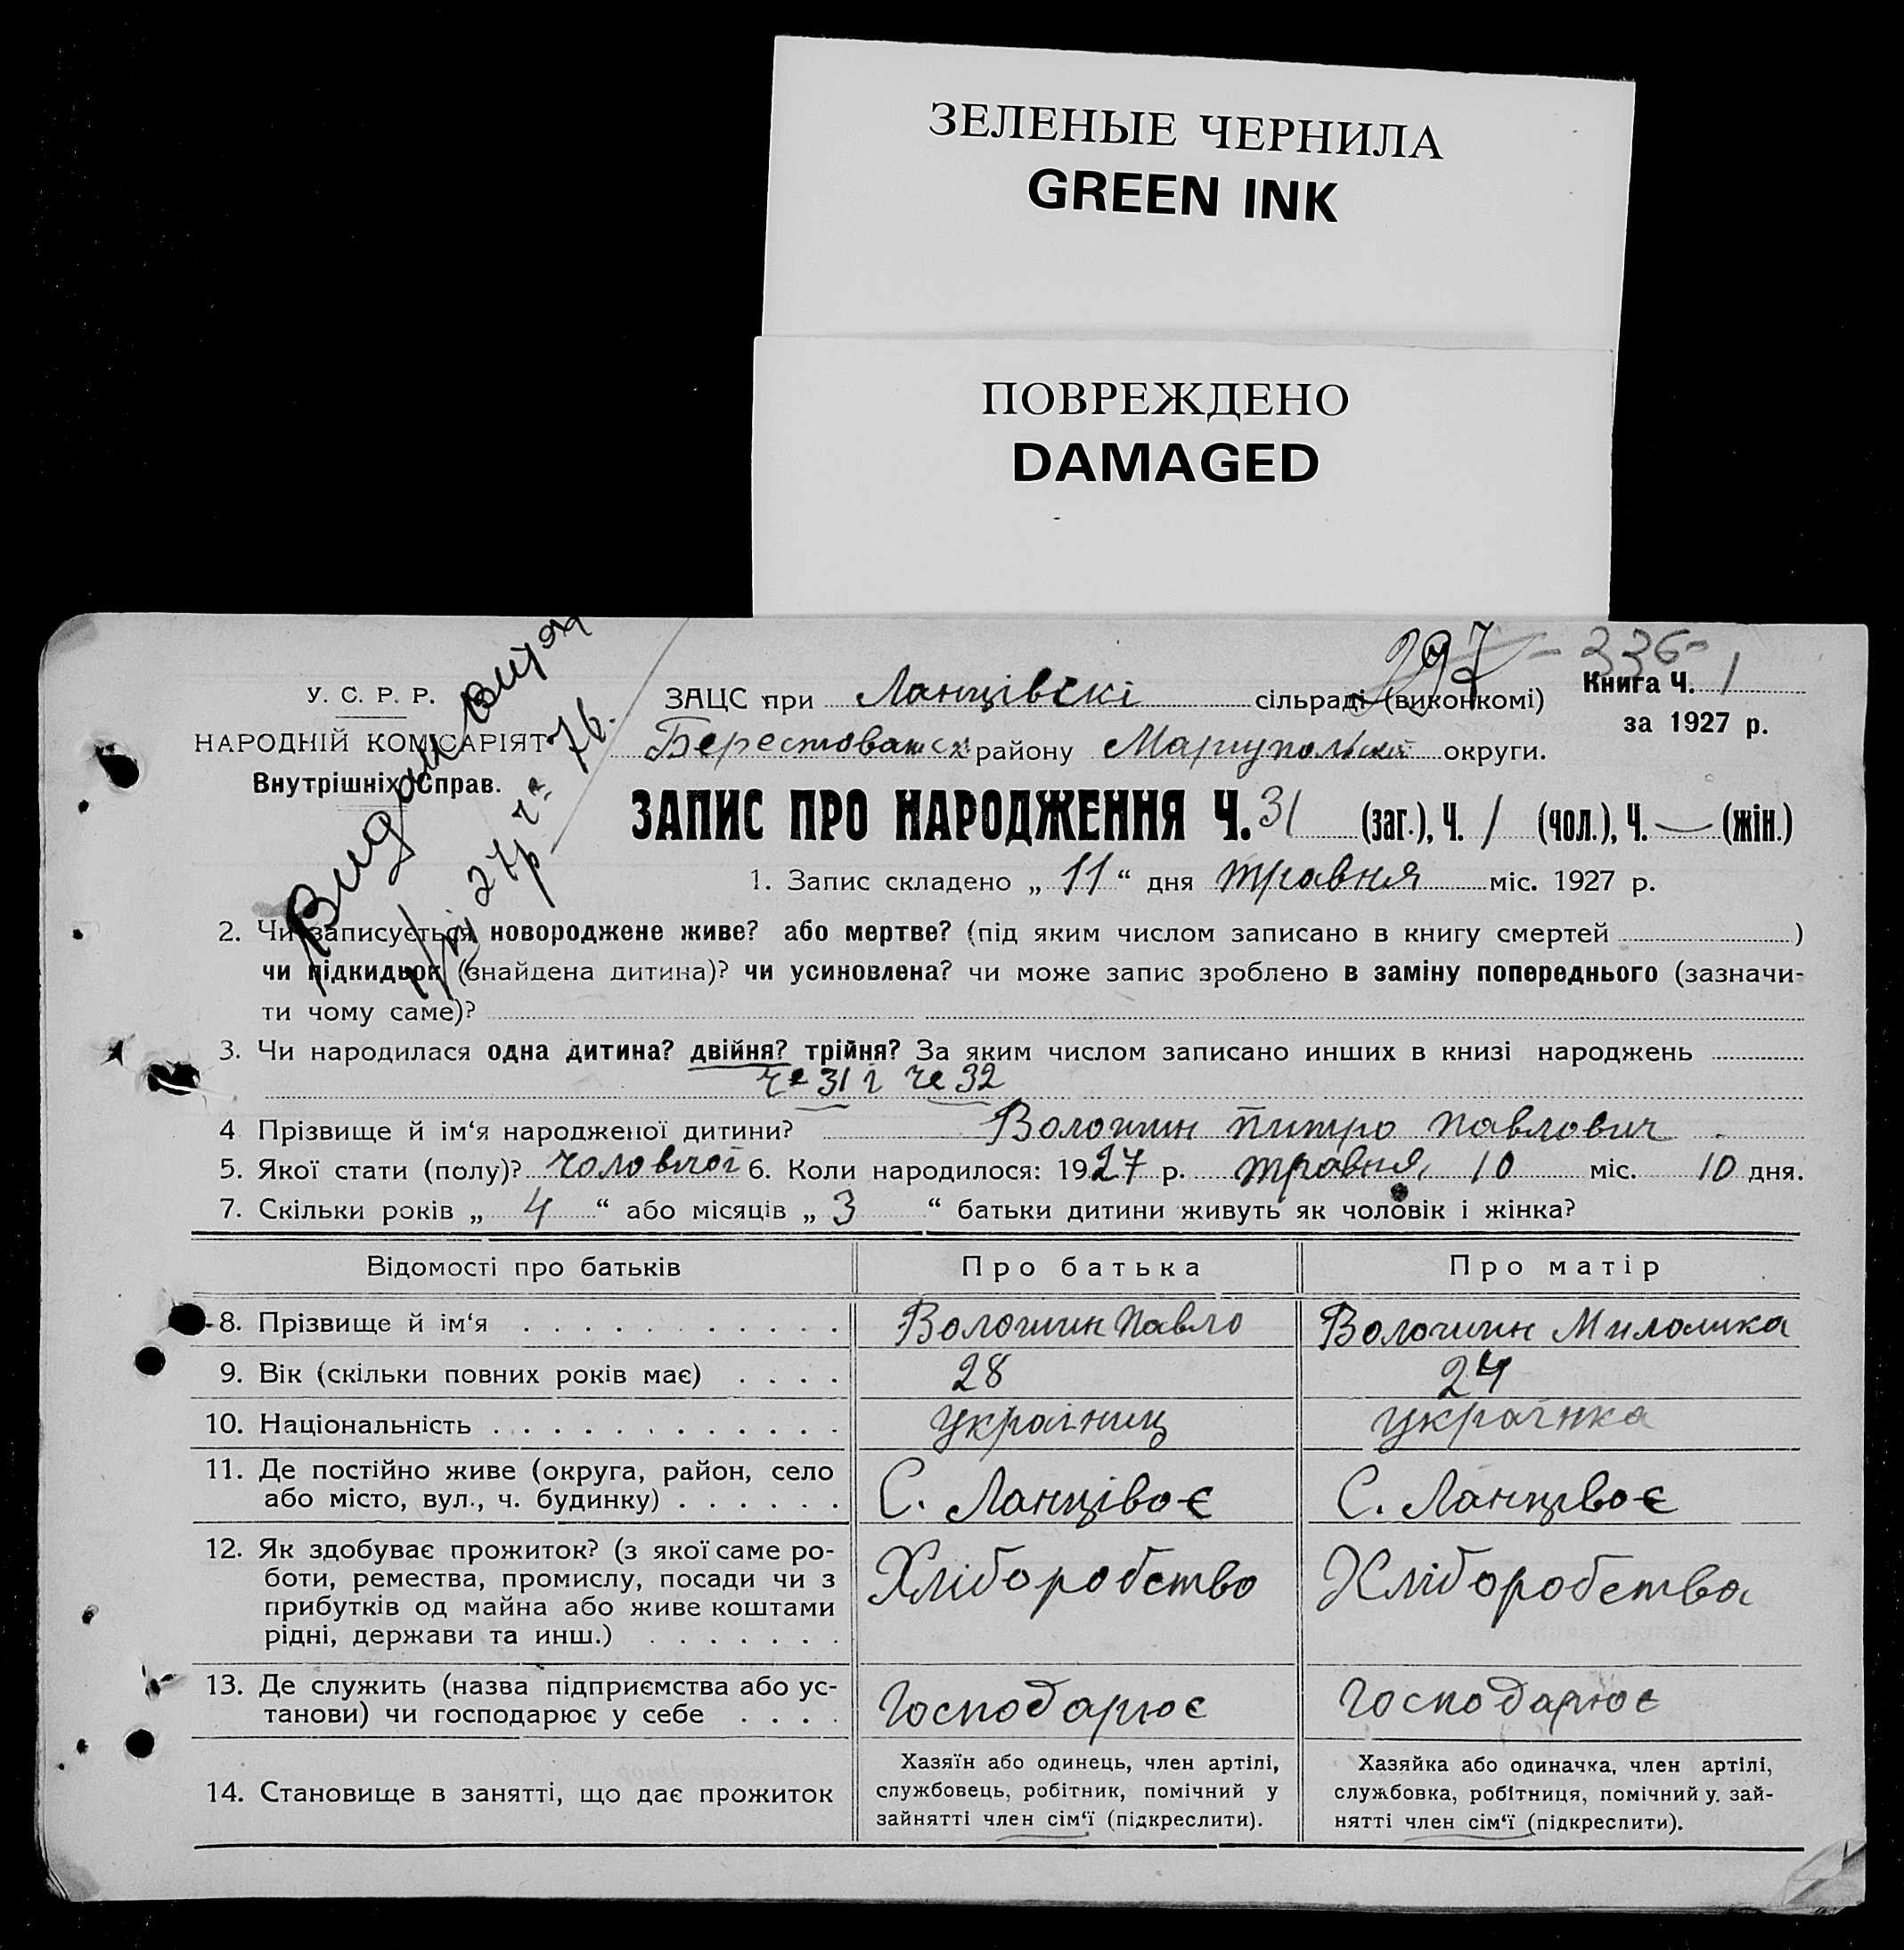 ЗЕЛЕНЫЕ ЧЕРНИЛА
GREEN INK
ПОВРЕЖДЕНО
DAMAGED
297 - 336
У. С. Р. Р.
НАРОДНІЙ КОМІСАРІЯТ
Внутрішніх Справ.
Видан витяг
27р ч. 76.
ЗАЦС при Ланцівскі сільраді (виконкомі) Книга Ч. 1
за 1927 р.
району Маріупольскої округи.
ЗАПИС ПРО НАРОДЖЕННЯ Ч. 31 (заг.), Ч. 1 (чол.), Ч. — (жін.)
1. Запис складено „ 11 “ дня травня міс. 1927 р.
2. Чи записується новороджене живе? або мертве? (під яким числом записано в книгу смертей )
чи підкидьок (знайдена дитина)? чи усиновлена? чи може запис зроблено в заміну попереднього (зазначи-
ти чому саме)?
3. Чи народилася одна дитина? двійня? трійня? За яким числом записано инших в книзі народжень
че 31 і че 32
4 Прізвище й ім‘я народженої дитини? Волошин Питро Павлович
5. Якої стати (полу)? чоловічої 6. Коли народилося: 1927 р. травня, 10 міс. 10 дня.
7. Скільки років „ 4 “ або місяців „ 3 “ батьки дитини живуть як чоловік і жінка?
Відомості про батьків Про батька Про матір
8. Прізвище й ім‘я Волошин Павло Волошин
9. Вік (скільки повних років має) 28 24
10. Національність україниц українка
11. Де постійно живе (округа, район, село
або місто, вул., ч. будинку) С. Ланцівоє С. Ланцівоє
12. Як здобуває прожиток? (з якої саме ро-
боти, ремества, промислу, посади чи з
прибутків од майна або живе коштами
рідні, держави та инш.) Хліборобство Хліборобства
13. Де служить (назва підприємства або ус-
танови) чи господарює у себе Господарює Господарює
14. Становище в занятті, що дає прожиток
Хазяїн або одинець, член артілі,
службовець, робітник, помічний у
зайнятті член сім‘ї (підкреслити).
Хазяйка або одиначка, член артілі,
службовка, робітниця, помічний у. зай-
нятті член сім‘ї (підкреслити).